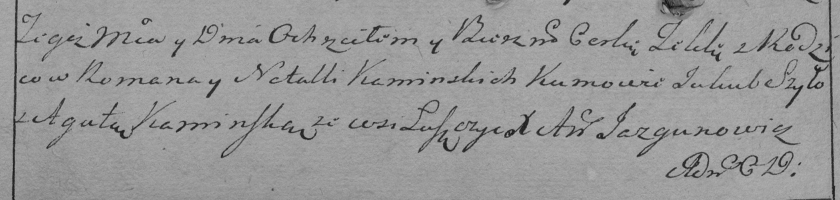 Tegoż Mca y Dnia Ochrzciłem y Bierzm Corkę z Rodzi
cow Romana y Natalli Kaminskich Kumowie Jakub Szyło
z Agatą Kaminską ze wsi X Jazgunowicz
Adm C D: